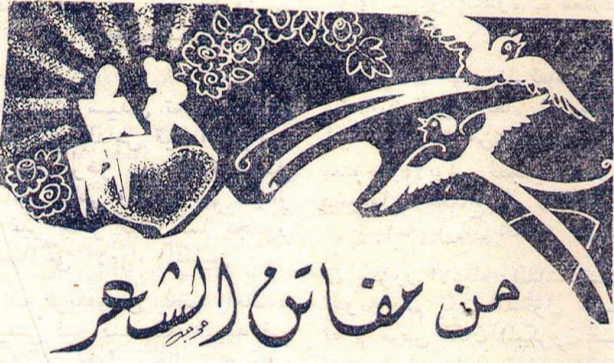 من مفاتن الشعر